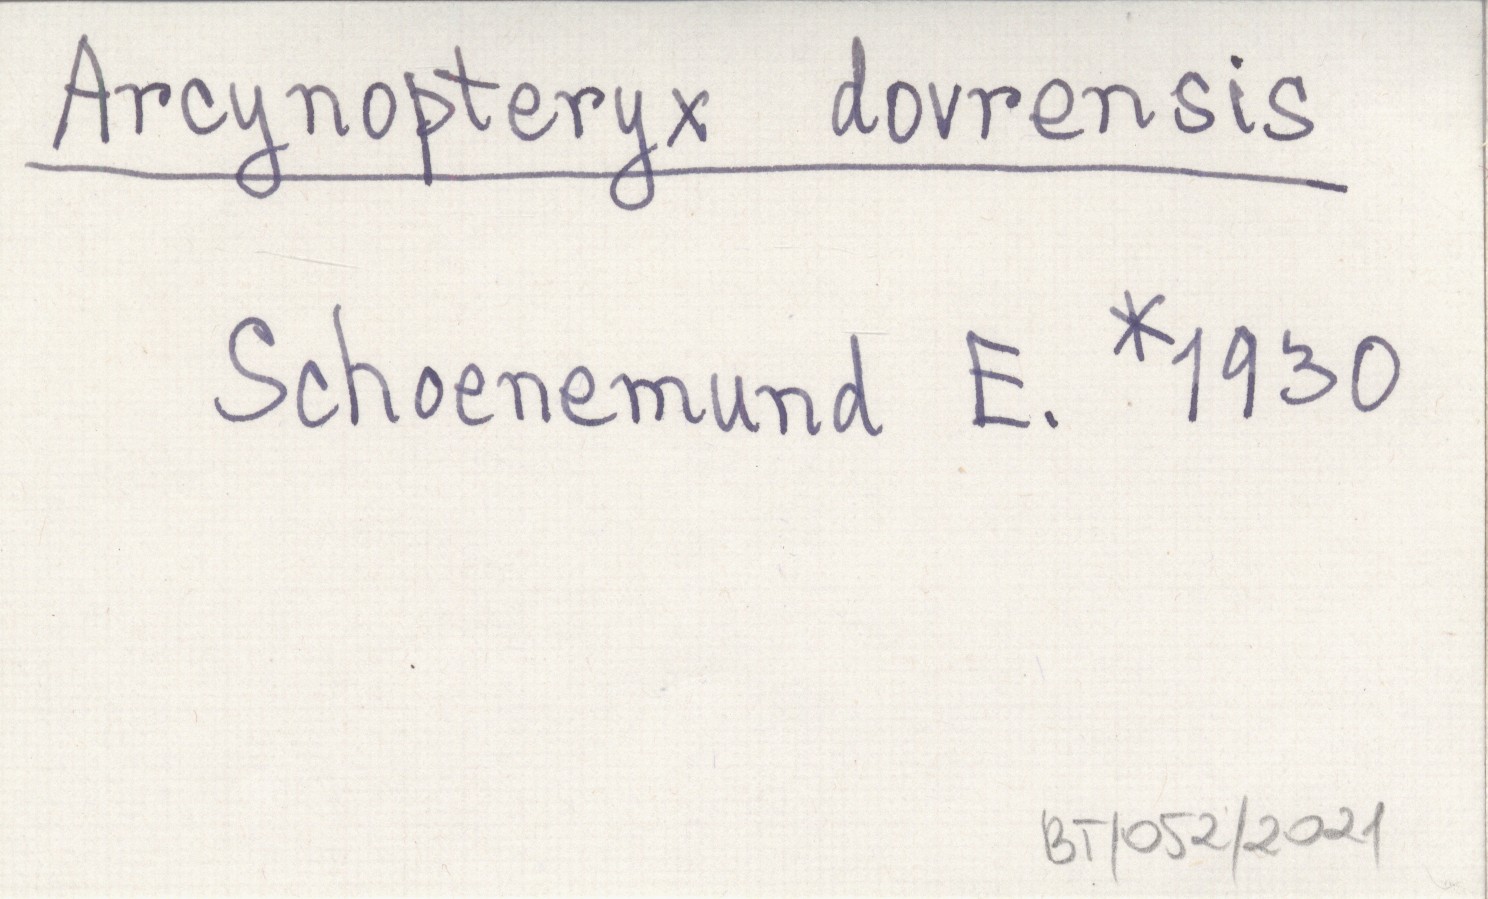 Arcynopteryx dovrensis
Schoenemund E. *1930
BT/052/2021